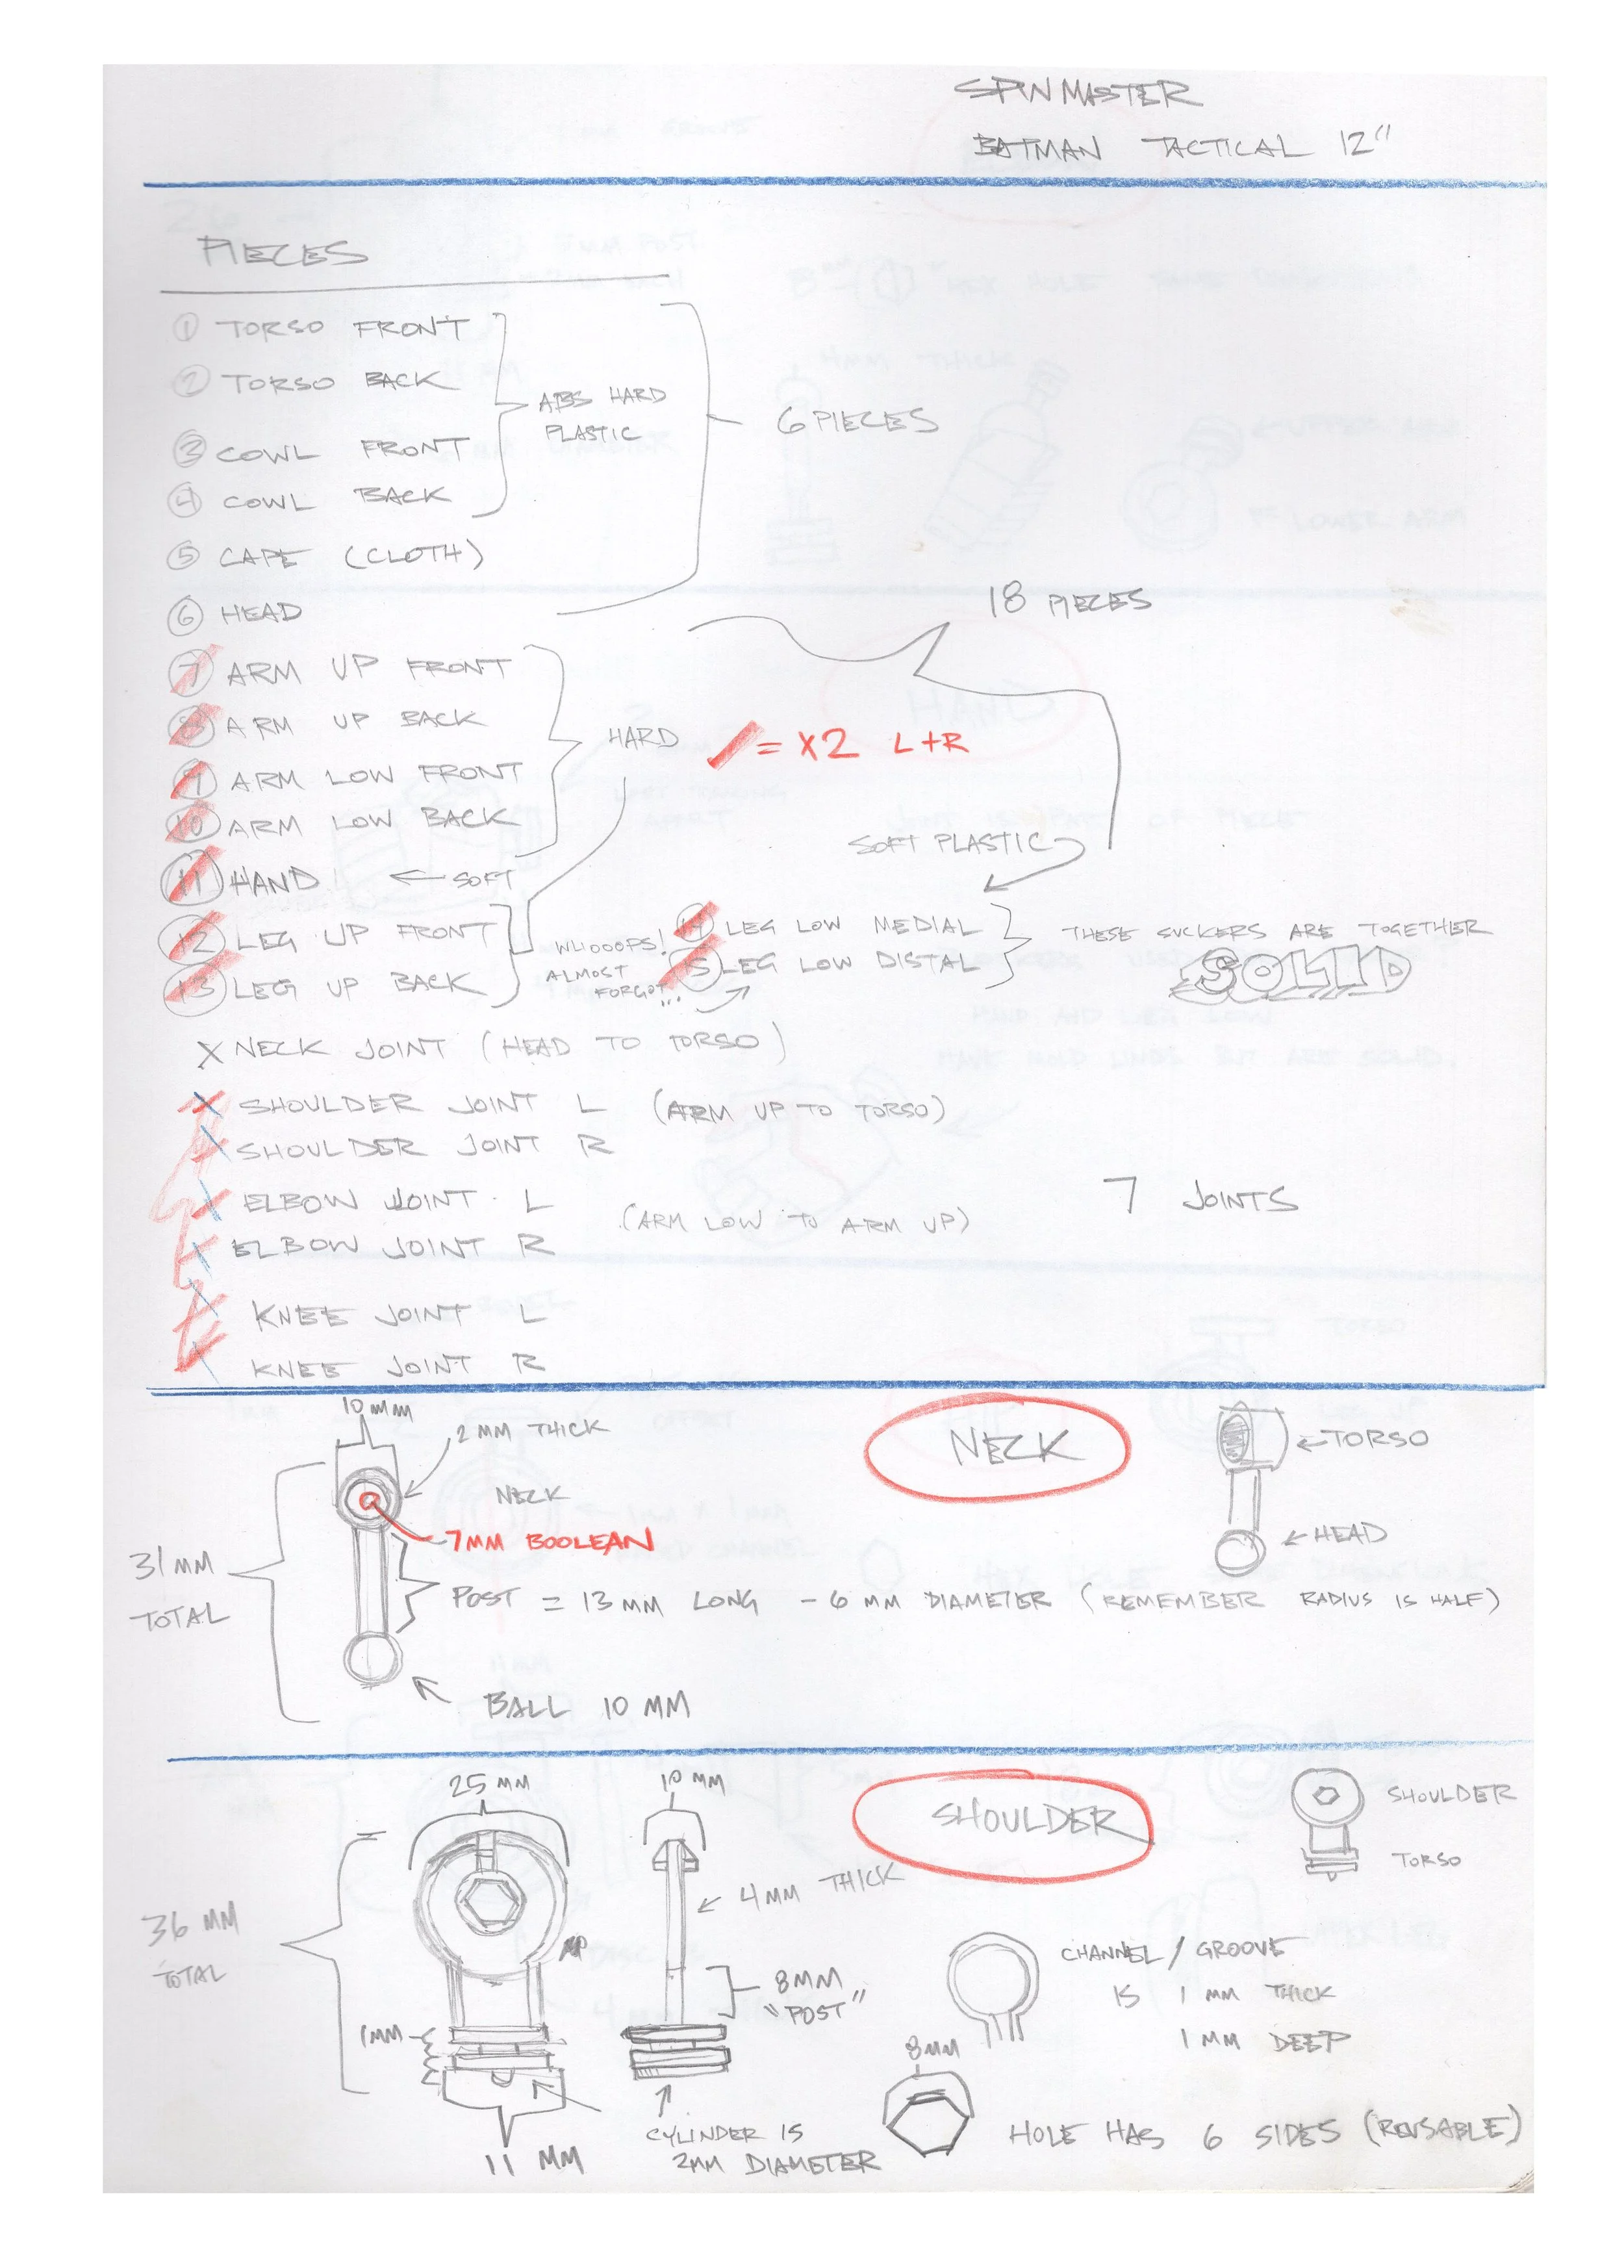 SPIN MASTER
BATMAN TACTICAL 12"
PIECES
1 TORSO FRONT
2 TORSO BACK
3 COWL FRONT
4 COWL BACK
ABS HARD
PLASTIC
5 CAPE (CLOTH)
6 HEAD
6 PIECES
18 PIECES
7 ARM UP FRONT
8 ARM UP BACK
9 ARM LOW FRONT
10 ARM LOW BACK
HARD
/ = X2 L+R
11 HAND ← SOFT
12 LEG UP FRONT
13 LEG UP BACK
WHOOOPS!
ALMOST
FORGOT...
SOFT PLASTIC
14 LEG LOW MEDIAL
15 LEG LOW DISTAL
THESE SUCKERS ARE TOGETHER
SOLID
X NECK JOINT (HEAD TO TORSO)
X SHOULDER JOINT L (ARM UP TO TORSO)
X SHOULDER JOINT R
X ELBOW JOINT L
(ARM LOW TO ARM UP)
X ELBOW JOINT R
7 JOINTS
X KNEE JOINT L
X KNEE JOINT R
10 MM
2 MM THICK
NECK
NECK
7MM BOOLEAN
31 MM
TOTAL
POST = 13 MM LONG - 6 MM DIAMETER (REMEMBER RADIUS IS HALF)
BALL 10 MM
← TORSO
← HEAD
25 MM
10 MM
SHOULDER
SHOULDER
TORSO
36 MM
TOTAL
← 4MM THICK
8MM
"POST"
1MM
11 MM
CYLINDER IS
2MM DIAMETER
CHANNEL / GROOVE
IS 1 MM THICK
1 MM DEEP
8MM
HOLE HAS 6 SIDES (REUSABLE)